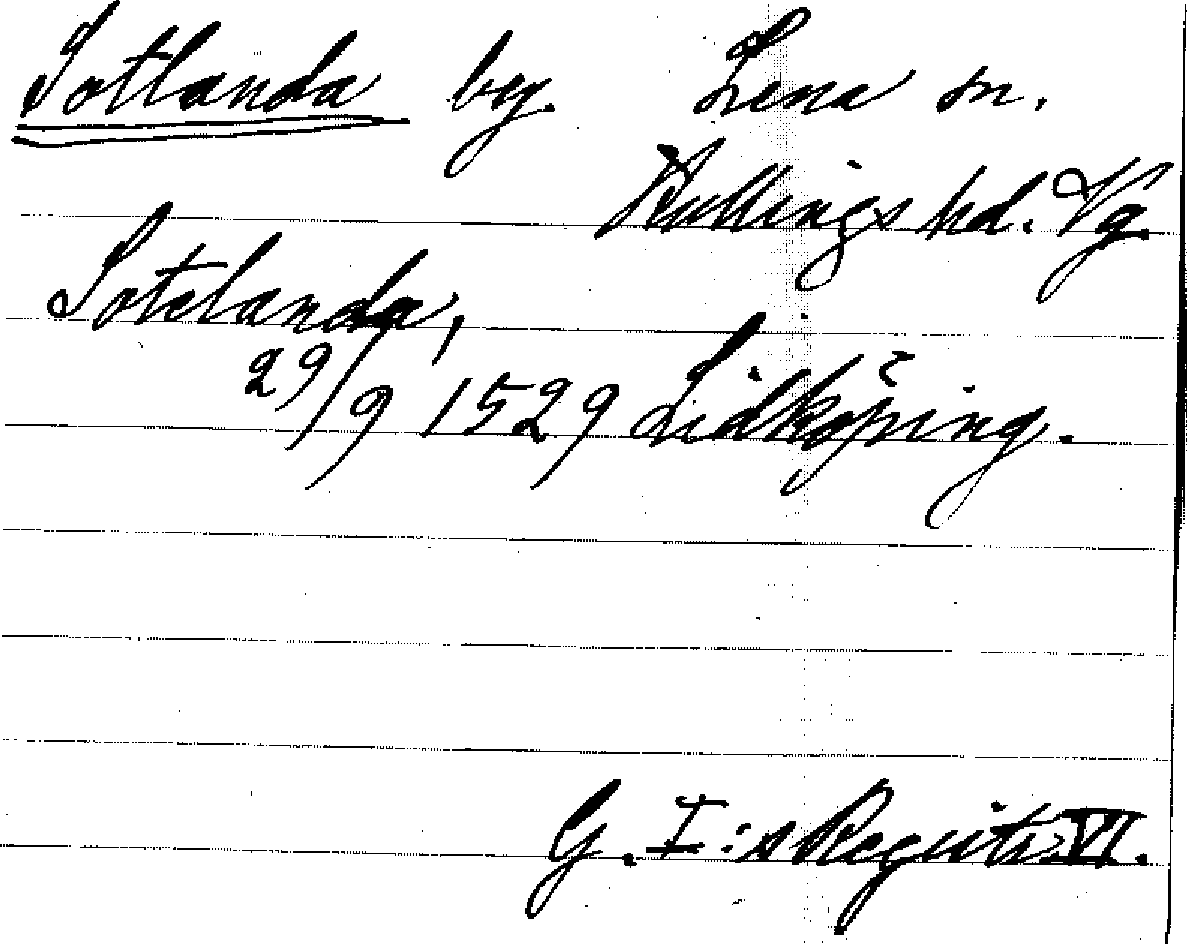 Sotlanda by. Lena sn.
Kullings hd. Vg.
Sotelanda,
29/9 1529 Lidköping.
G. I:s Registr. VI.